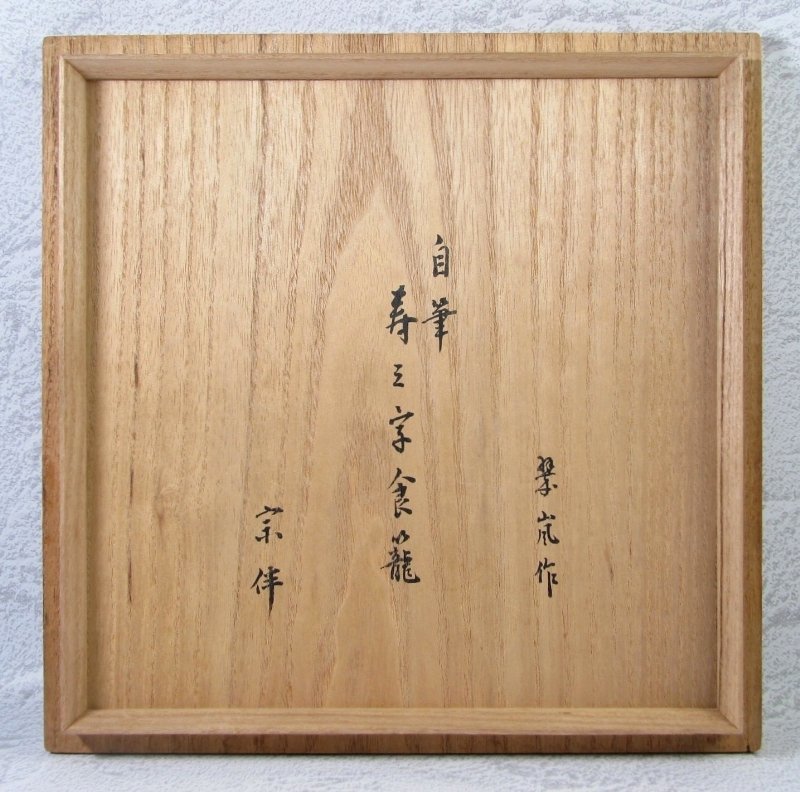 翠嵐作
自筆
寿之字食籠
宗伴